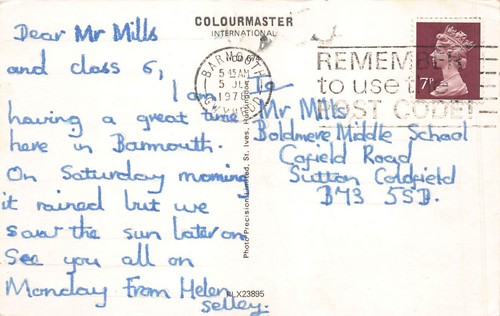 COLOURMASTER
INTERNATIONAL
Dear Mr Mills
and class 6,
I am
having a great time
here in Barmouth.
On Saturday morning
it rained but we
saw the sun later on
See you all on
Monday From Helen
selley.
BARMOUTH
5 15 AM
5 JE
1978
GWYNEDD
REMEMBER
to use the
POST CODE!
7P
To
Mr Mills
Boldmere Middle School
Cofield Road
Sutton Coldfield
B73 5SD.
Photo Precision Limited, St. Ives, Huntingdon
PLX23895